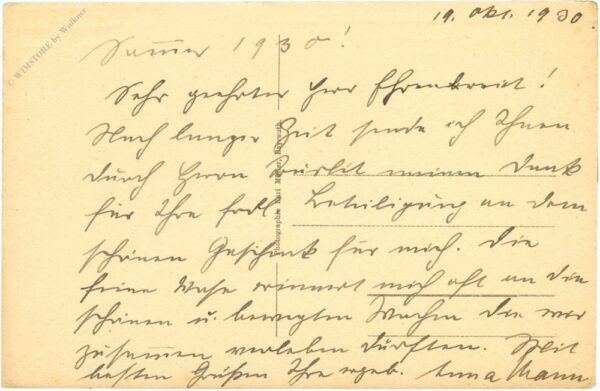 19. Okt. 1930.
Sommer 1930!
Sehr geehrter Herr Ehrenbreit!
Nach langer Zeit sende ich Ihnen
durch Herrn meinen Dank
für Ihre frdl. Beteiligung an dem
schönen Geschenk für mich. Die
feine Vase erinnert mich oft an die
schönen u. bewegten Wochen die wir
zusammen verleben durften. Mit
besten Grüßen Ihre ergeb. Anna Mann
Photographie Karl Bayreuth
© WIMSTORE by Walkner